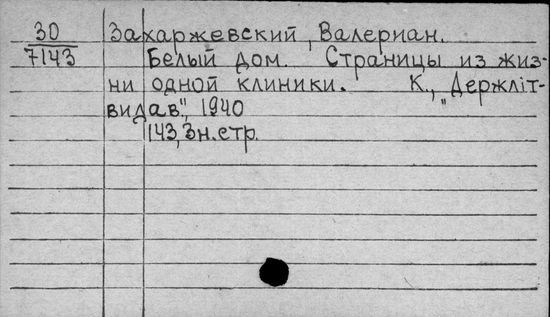 30 Захаржевский, Валериан.
7143 Белый дом. Страницы из жиз-
ни одной клиники. К., „Держліт-
видав", 1940
143, 3 н. стр.